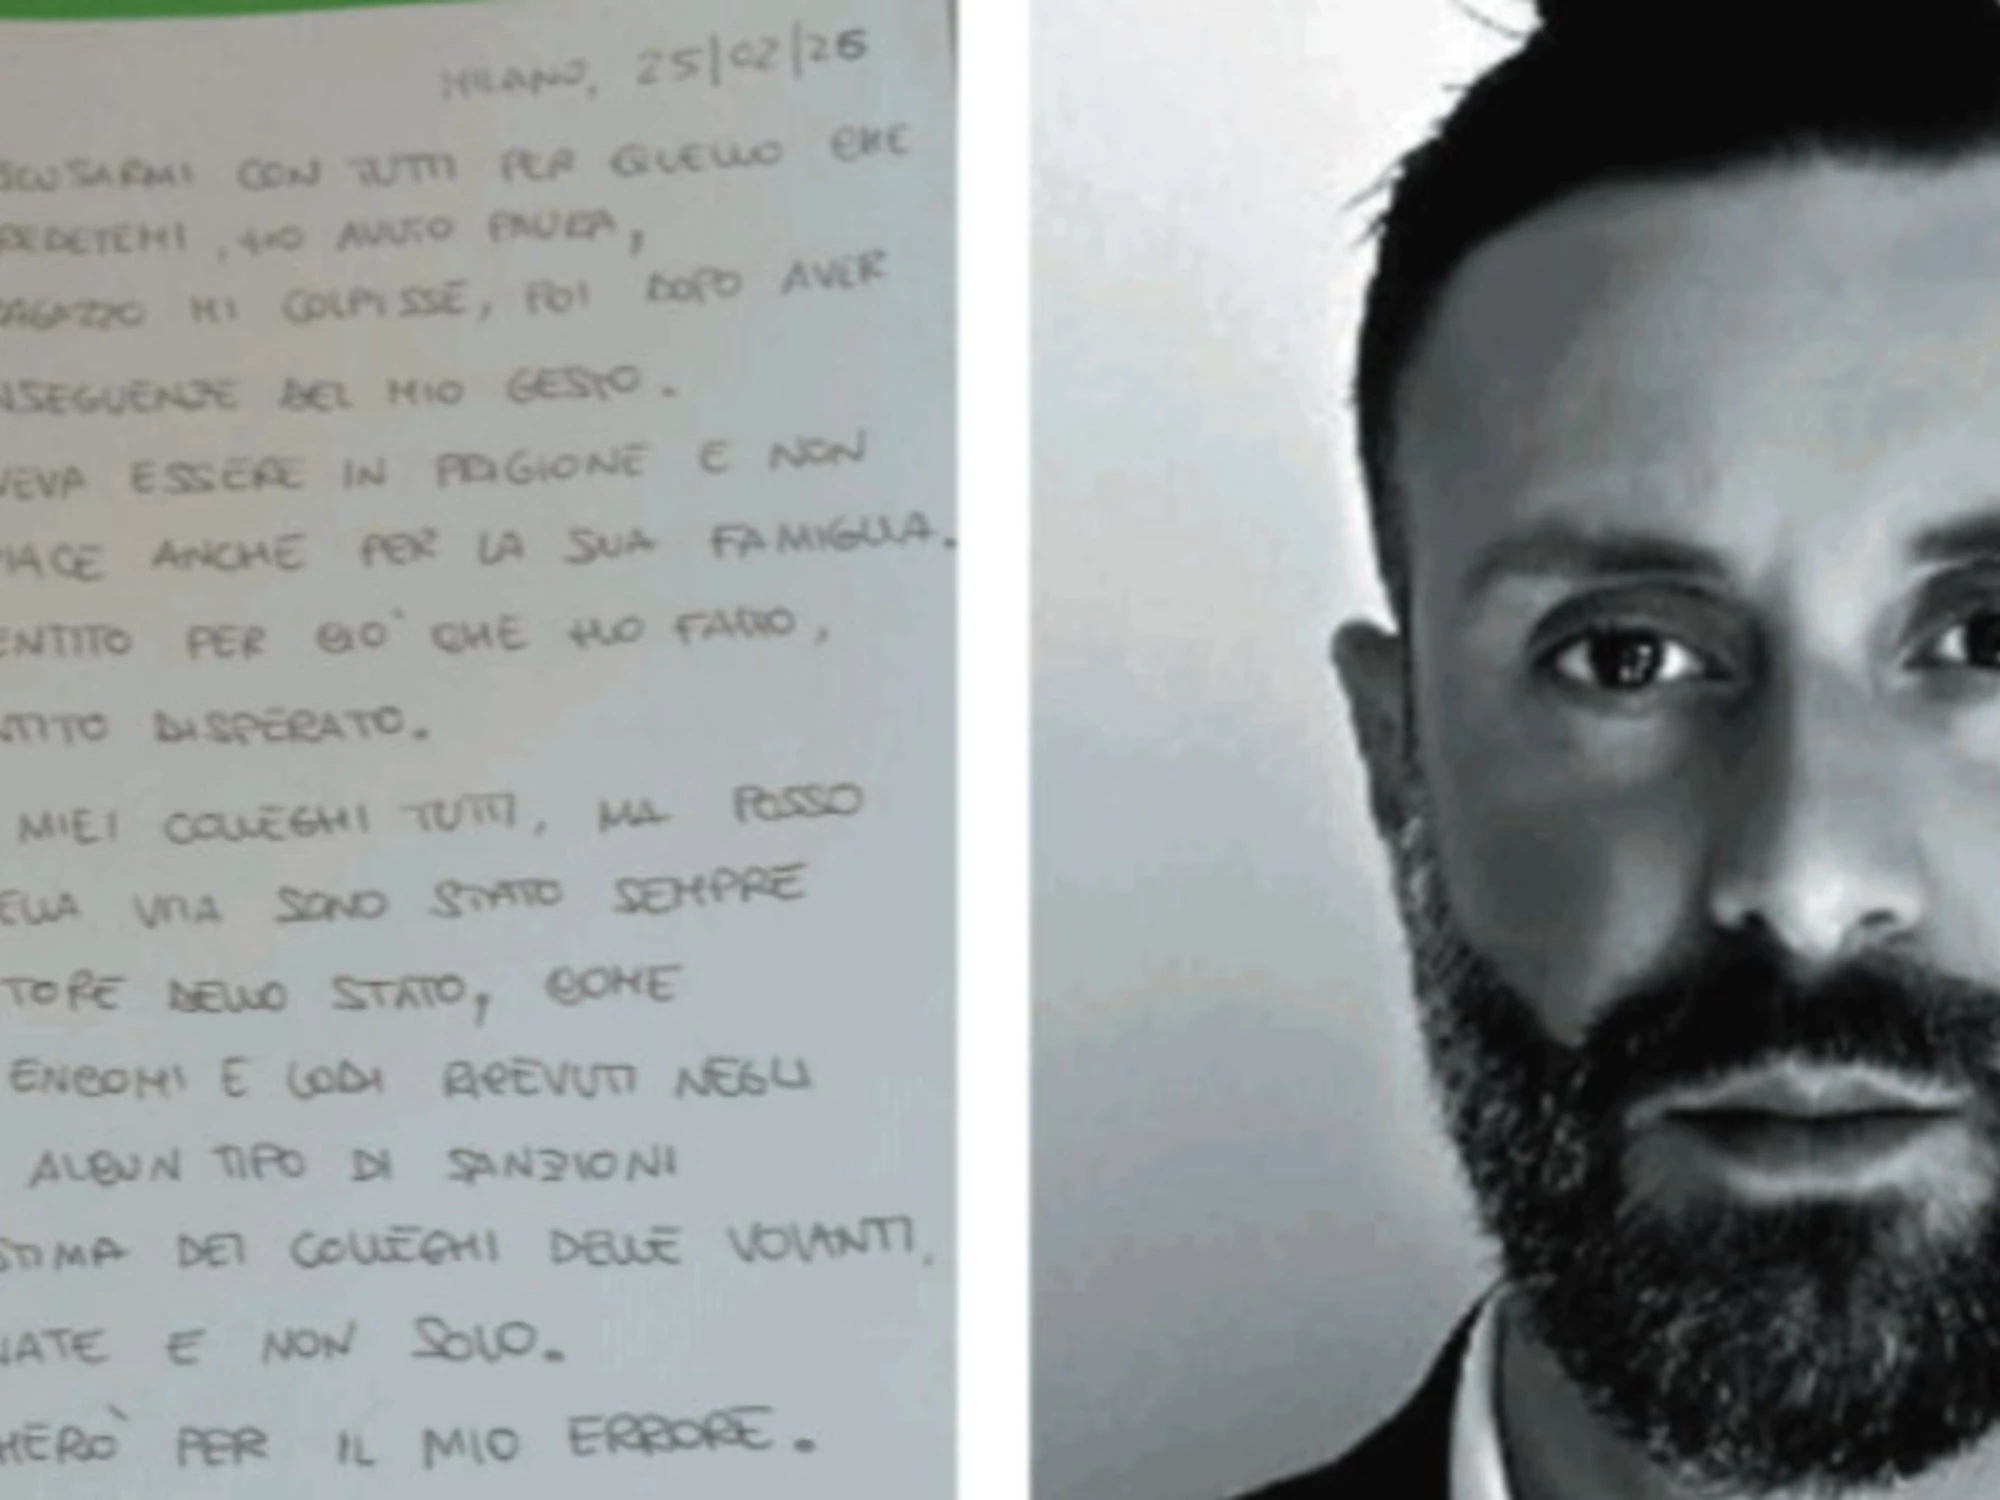 MILANO, 25/02/26
SCUSARMI CON TUTTI PER QUELLO CHE
REDETEMI, HO AVUTO PAURA,
RAGAZZO MI COLPISSE, POI DOPO AVER
NSEGUENZE DEL MIO GESTO.
VEVA ESSERE IN PRIGIONE E NON
PIACE ANCHE PER LA SUA FAMIGLIA.
ENTITO PER CIÒ CHE HO FATTO,
NTITO DISPERATO.
MIEI COLLEGHI TUTTI, MA POSSO
ELLA VITA SONO STATO SEMPRE
TORE DELLO STATO, COME
ENCOMI E LODI RICEVUTI NEGLI
ALCUN TIPO DI SANZIONI
STIMA DEI COLLEGHI DELLE VOLANTI,
NATE E NON SOLO.
HERÒ PER IL MIO ERRORE.